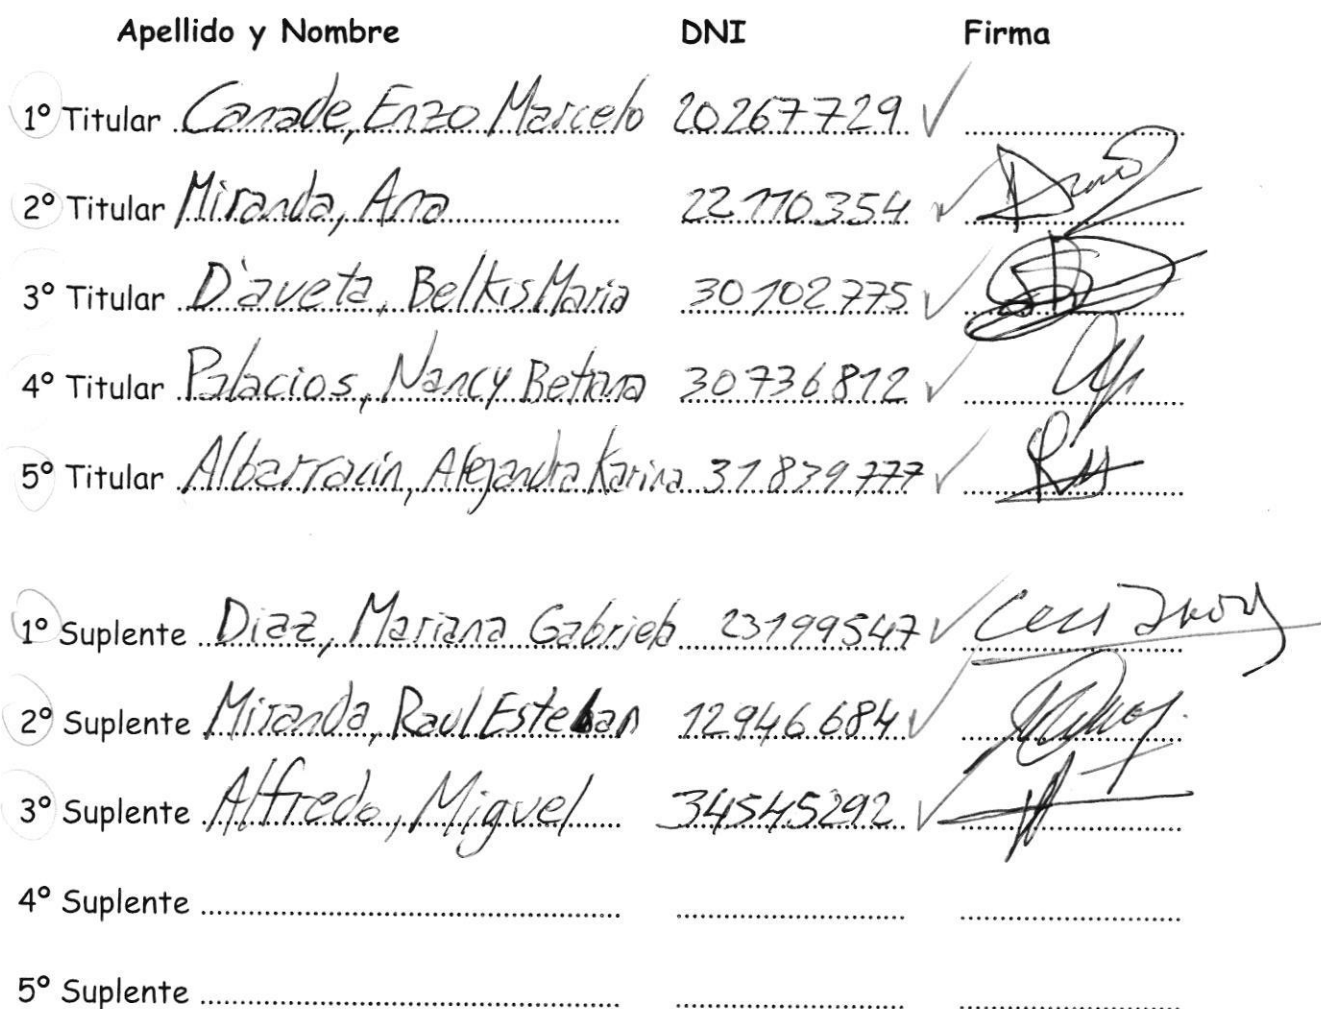 Apellido y Nombre DNI Firma
1º Titular Canade, Enzo Marcelo 20267729
2º Titular Miranda, Ana 22.110.354
3º Titular D'aveta, Belkis Maria 30102775
4º Titular Palacios, Nancy Betiana 30736812
5º Titular Albarracin, Alejandra Karina 31839777
1º Suplente Diaz, Mariana Gabriela 23199547
2º Suplente Miranda, Raul Esteban 12946684
3º Suplente Alfredo, Miguel 34545292
4º Suplente
5º Suplente